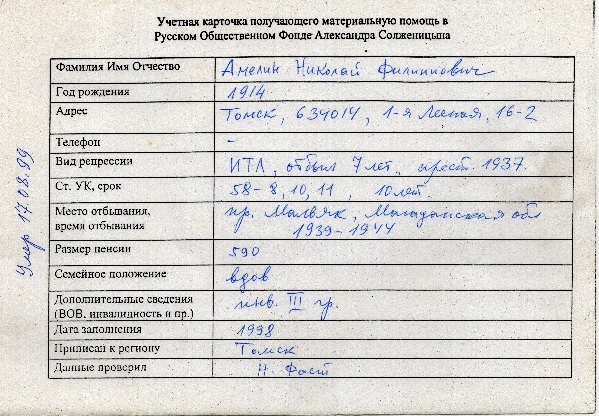 Учетная карточка получающего материальную помощь в
Русском Общественном Фонде Александра Солженицына
Фамилия Имя Отчество Амелин Николай Филиппович
Год рождения 1914
Адрес Томск, 634014, 1-я Лесная, 16-2
Телефон -
Вид репрессии ИТЛ, отбыл 7 лет, арест. 1937.
Ст. УК, срок 58-8, 10, 11, 10 лет.
Место отбывания, пр. Мальдяк, Магаданская обл
время отбывания 1939-1944
Размер пенсии 590
Семейное положение вдов
Дополнительные сведения инв. III гр.
(ВОВ, инвалидность и пр.)
Дата заполнения 1998
Приписан к региону Томск
Данные проверил Н. Фаст
Умер 17.08.99